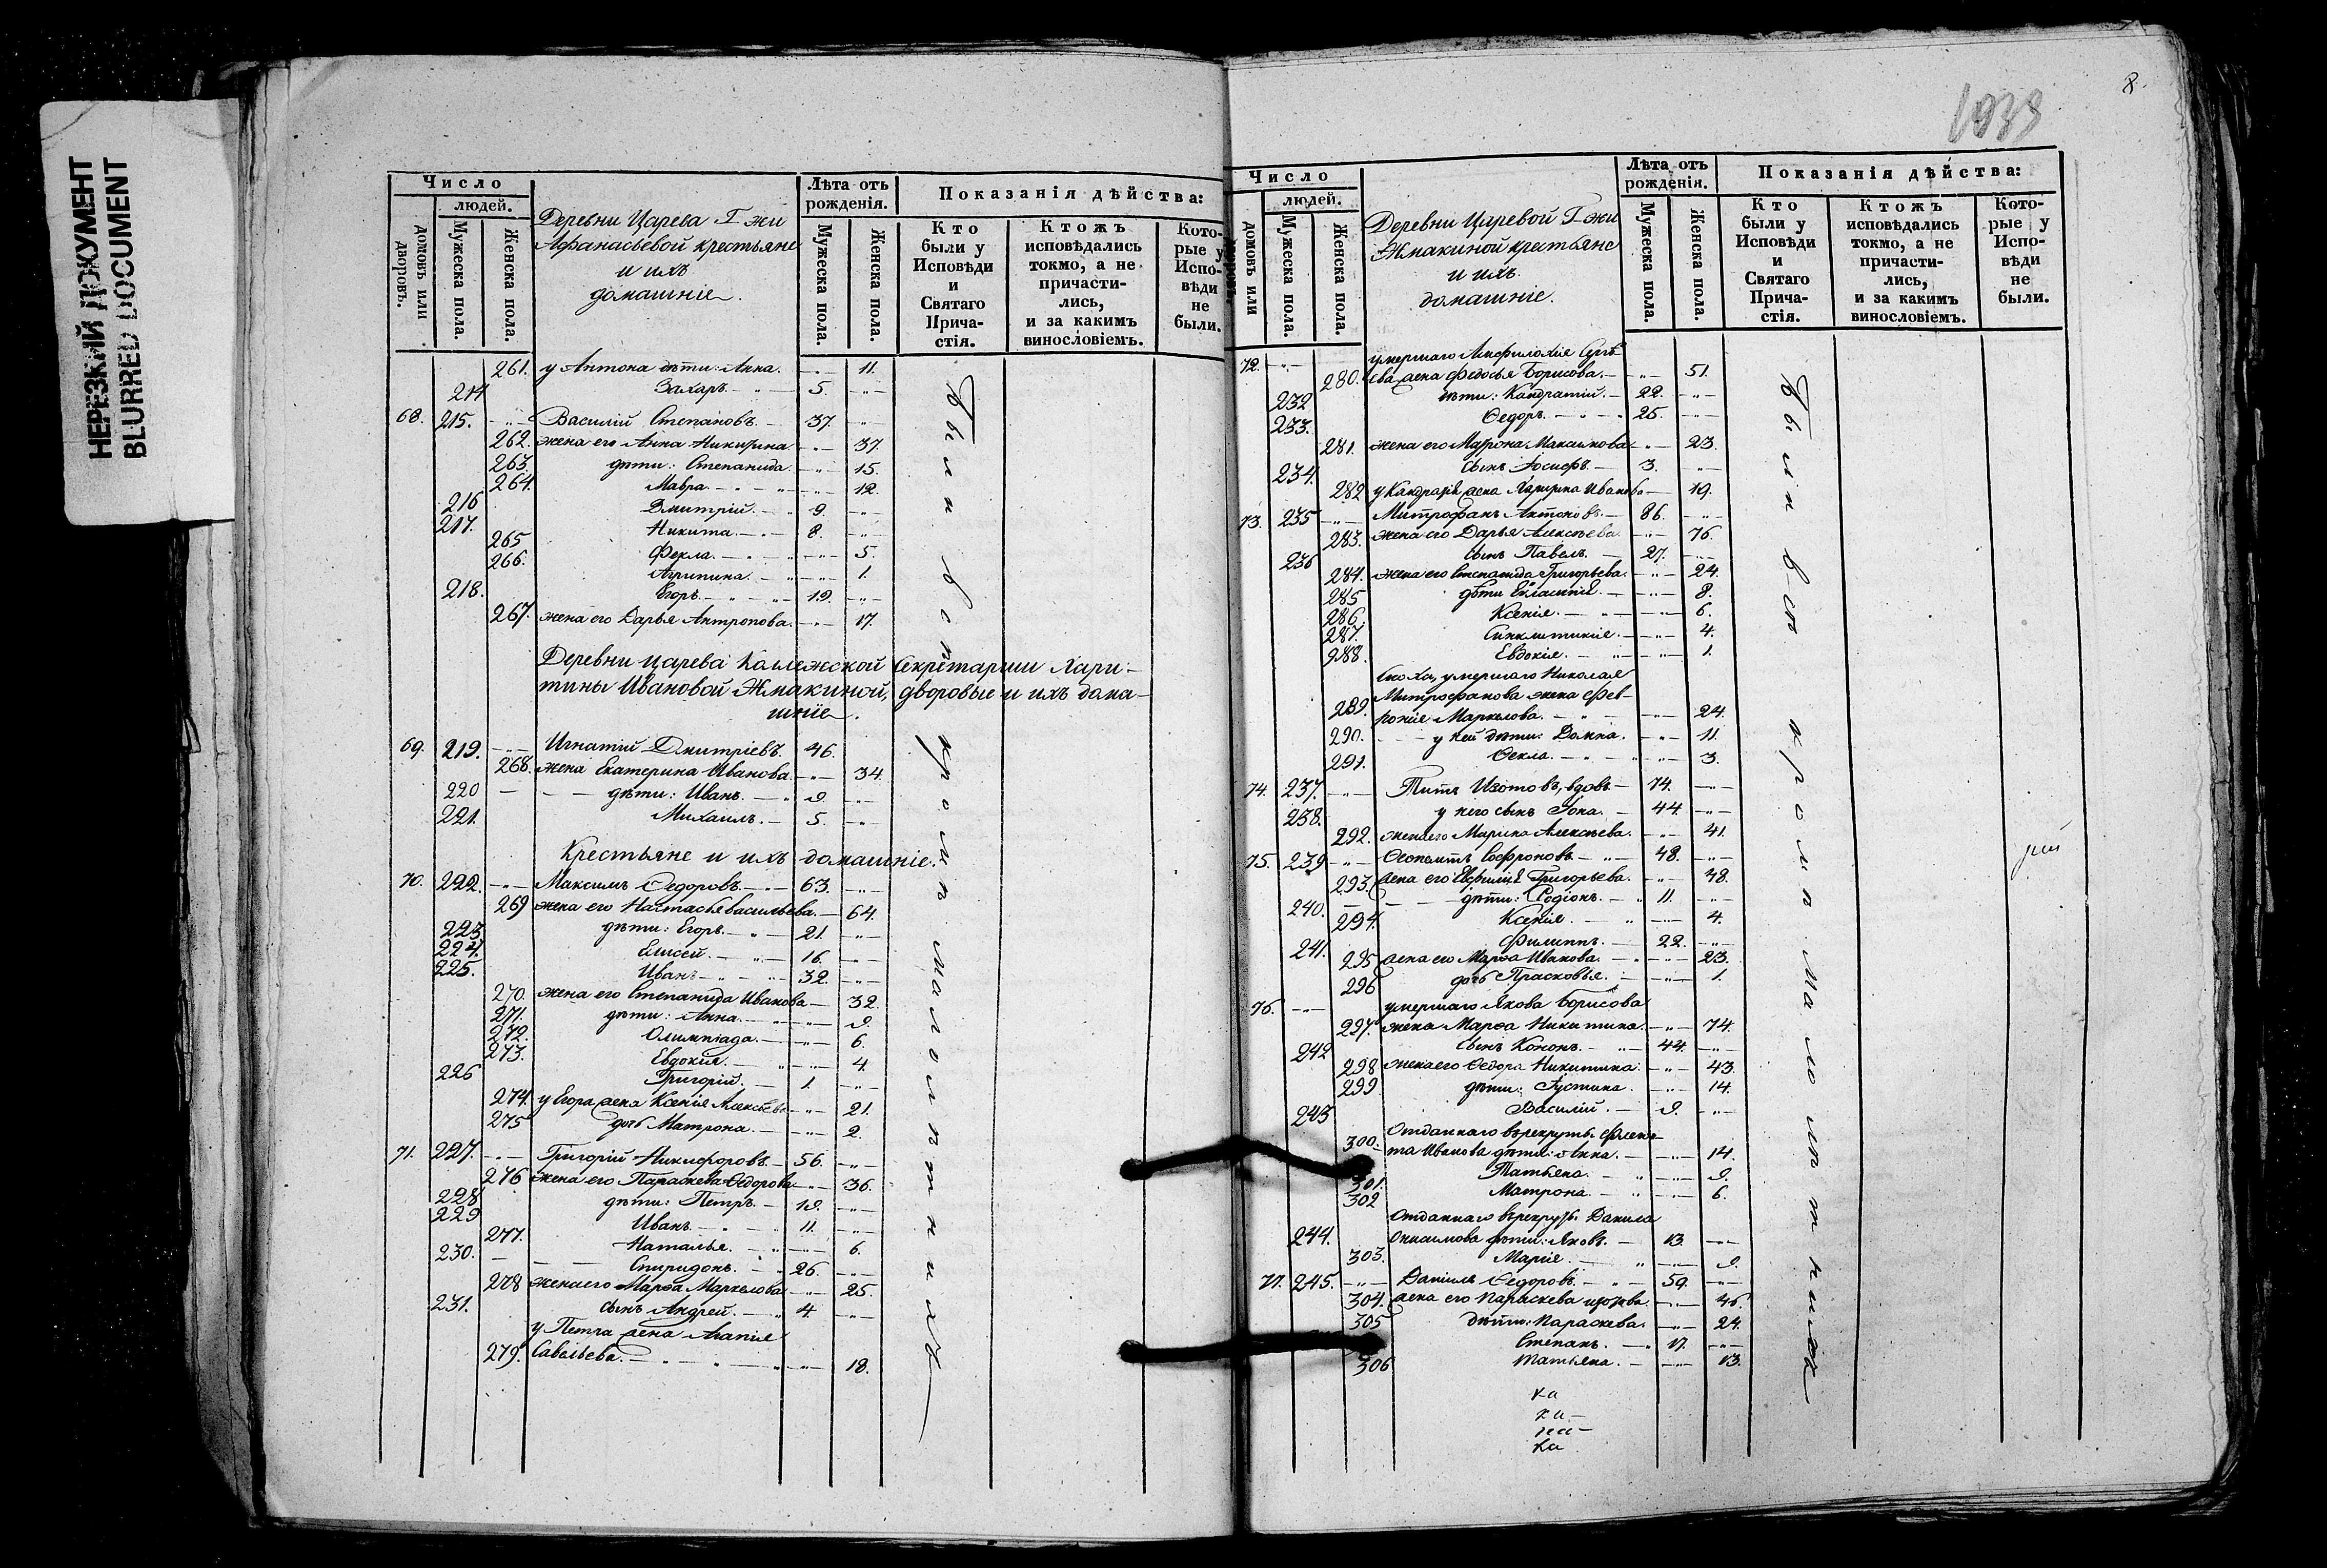 НЕРЕЗКИЙ ДОКУМЕНТ
BLURRED DOCUMENT
Число
людей.
домовъ или дворовъ.
Мужеска пола.
Женска пола.
Деревни Царева Г-жи
Афанасьевой крестьяне
и ихъ
домашніе.
Лѣта отъ рожденія.
Мужеска пола.
Женска пола.
Показанія дѣйства:
Кто были у Исповѣди и Святаго Прича- стія.
Ктожъ исповѣдались токмо, а не причасти- лись, и за какимъ винословіемъ.
Кото- рые у Испо- вѣди не были.
261. у Антона дѣти: Анна. 11.
214 Захаръ 5.
68. 215. Василій Степановъ. 37.
262. жена его Анна Никитина 37.
263. дѣти: Степанида 15.
264. Мавра. 12.
216 Дмитрій. 9.
217. Никита. 8.
265 Фекла. 5.
266. Агрипина. 1.
218. Егоръ. 19.
267. жена его Дарья Антропова. 17.
Деревни Царева Коллежской Секретарши Хари-
тины Ивановой Жмакиной, дворовые и ихъ дома-
шніе.
69. 219. Игнатій Дмитріевъ. 46.
268. жена Екатерина Иванова. 34.
220 дѣти: Иванъ. 9.
221. Михаилъ. 5.
Крестьяне и ихъ домашніе.
70. 222. Максимъ Ѳедоровъ. 63.
269 жена его Настасья Васильева. 64.
223 дѣти: Егоръ. 21.
224. Елисей. 16.
225. Иванъ 32.
270. жена его Степанида Иванова 32.
271. дѣти: Анна. 9.
272. Олимпіада. 6.
273. Евдокия. 4.
226 Григорій. 1.
274. у Егора жена Ксенія Алексѣева 21.
275 дочь Матрона. 2.
71. 227. Григорій Никифоровъ. 56.
276 жена его Параскева Ѳедорова 36.
228 дѣти: Петръ. 19.
229 Иванъ 11.
277. Наталья. 6.
230. Спиридонъ. 26.
278 жена его Марѳа Маркелова 25.
231. сынъ Андрей. 4.
у Петра жена Агапія
279. Савельева. 18.
Были всѣ кромѣ малолѣтнихъ
1033
8.
Число
людей.
домовъ или дворовъ.
Мужеска пола.
Женска пола.
Деревни Царевой Г-жи
Жмакиной крестьяне
и ихъ
домашніе.
Лѣта отъ рожденія.
Мужеска пола.
Женска пола.
Показанія дѣйства:
Кто были у Исповѣди и Святаго Прича- стія.
Ктожъ исповѣдались токмо, а не причасти- лись, и за какимъ винословіемъ.
Кото- рые у Испо- вѣди не были.
72. умершаго Амфилохія
280. жена Федосья Борисова. 51.
232 дѣти: Кандратій. 22.
233. Ѳедоръ. 25.
281. жена его Матрона Максимова 23.
234. сынъ Іосифъ. 3.
282 у Кандратія жена Иванова 19.
73. 235 Митрофанъ Антоновъ. 86.
283. жена его Дарья Алексѣева. 76.
236 сынъ Павелъ. 27.
284. жена его Степанида Григорьева. 24.
285 дѣти 8.
286. Ксенія. 6.
287. Синклитикія. 4.
288. Евдокія. 1.
сноха, умершаго Николая
Митрофанова жена Фев-
289. ронія Маркелова. 24.
290. у ней дѣти: Домна. 11.
291. Ѳекла. 3.
74. 237. Титъ Изотовъ, вдовъ 74.
238. у него сынъ Іона. 44.
292. жена его Марина Алексѣева. 41.
75. 239 Софроновъ. 48.
293. жена его Григорьева. 48.
240. дѣти: Родіонъ. 11.
294. Ксенія. 4.
241. Филиппъ. 22.
295 жена его Марѳа Иванова. 23.
296 дочь Прасковья. 1.
76. умершаго Якова Борисова
297. жена Марѳа Никитина. 74.
242 сынъ Кононъ. 44.
298 жена его Ѳедора Никитина. 43.
299 дѣти: Іустина. 14.
243 Василій. 9.
Отданнаго въ рекруты
300. Иванова дѣти: Анна. 14.
301. Татьяна. 9.
302 Матрона. 6.
Отданнаго въ рекруты Данила
244. Онисимова дѣти: Яковъ. 13.
303. Марія. 9.
77. 245. Даніилъ Ѳедоровъ. 59.
304. жена его Параскева Изотова. 46.
305 дѣти: Параскева. 24.
Степанъ. 17.
306 Татьяна. 13.
Были всѣ кромѣ малолѣтнихъ
ка
ка
ка
ка